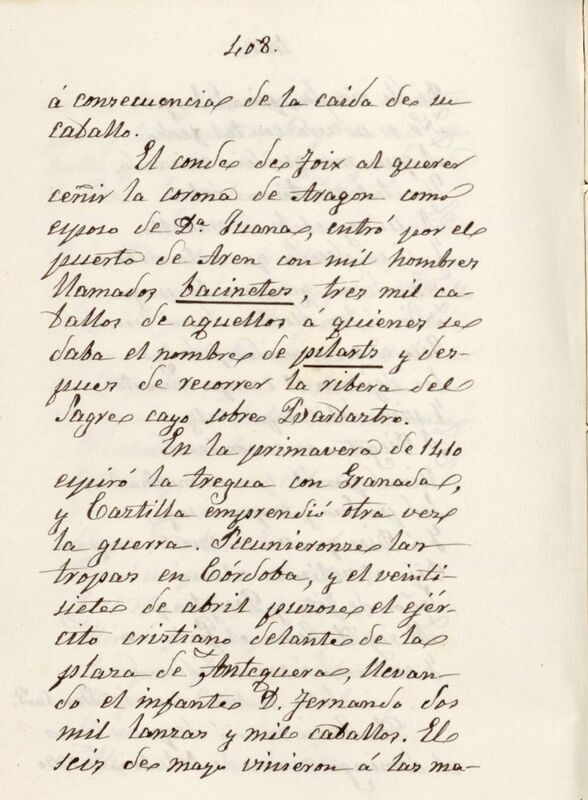 408.
á consecuencia de la caida de su
caballo.
El conde de Foix al querer
ceñir la corona de Aragon como
esposo de Dª Juana, entró por el
puerto de Aren con mil hombres
llamados bacinetes, tres mil ca-
ballos de aquellos á quienes se
daba el nombre de pilarts y des-
pues de recorrer la ribera del
Sagre cayo sobre Barbastro.
En la primavera de 1410
espiró la tregua con Granada,
y Castilla emprendió otra vez
la guerra. Reunieronse las
tropas en Córdoba, y el veinti-
siete de abril pusose el ejér-
cito cristiano delante de la
plaza de Antequera, llevan-
do el infante D. Fernando dos
mil lanzas y mil caballos. El
seis de mayo vinieron á las ma-